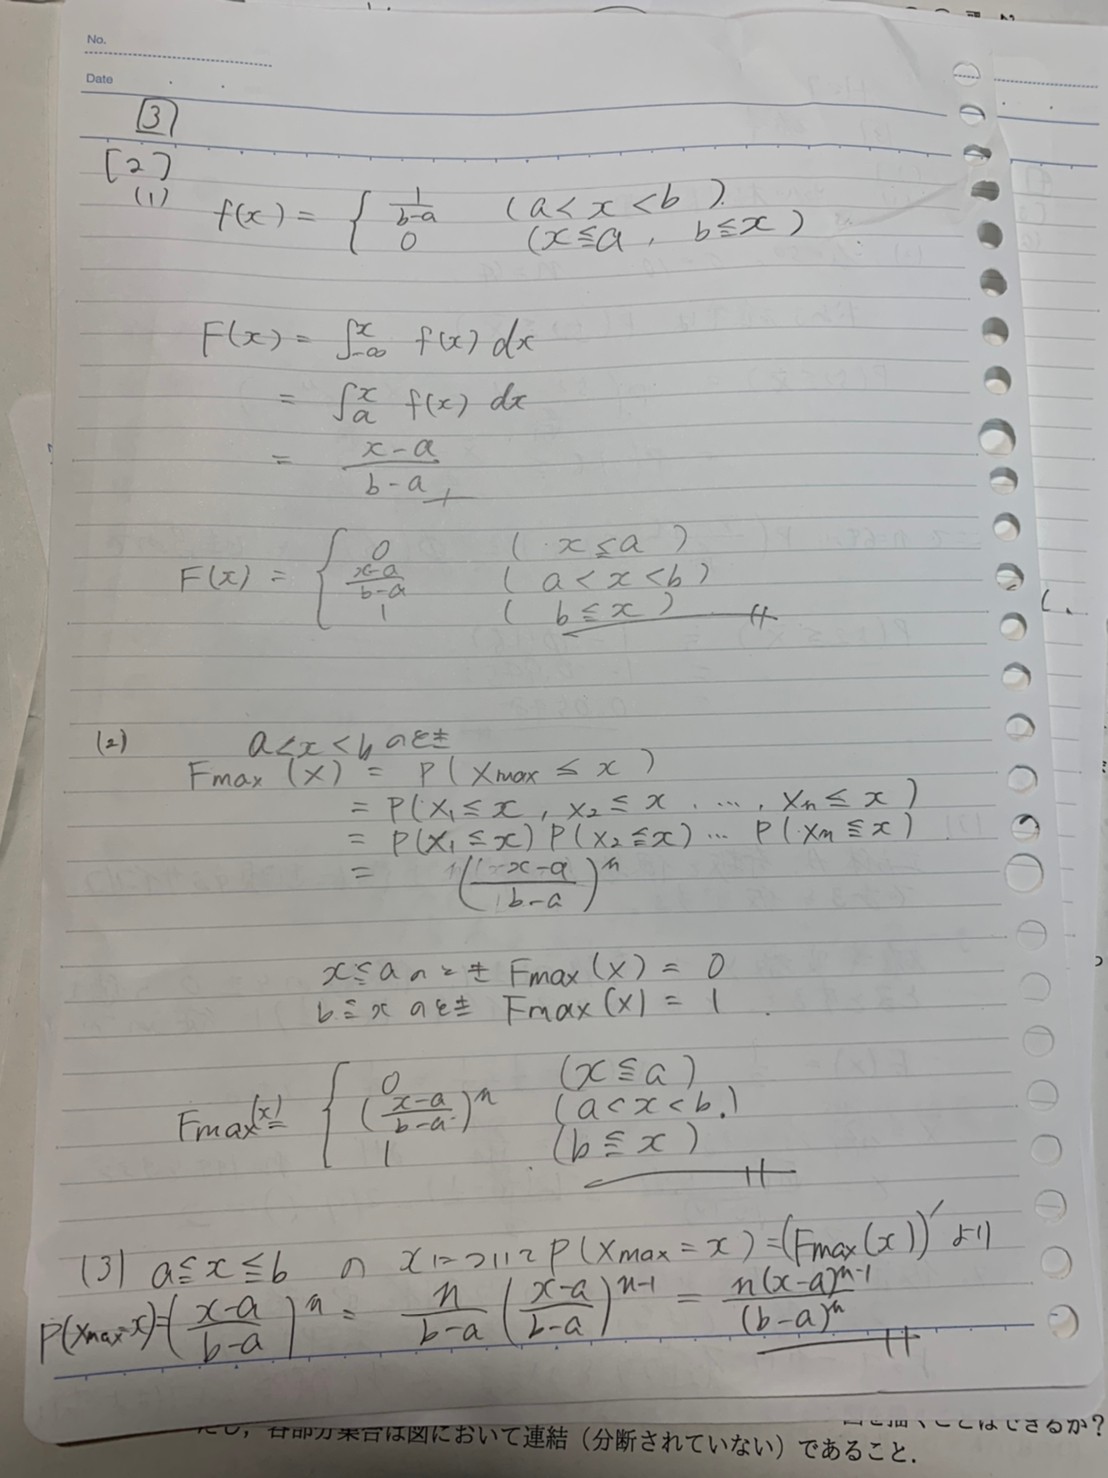 No.
Date
[3]
[2]
(1) f(x) = { 1/(b-a) (a < x < b)
0 (x ≦ a, b ≦ x)
F(x) = ∫_{-∞}^{x} f(x) dx
= ∫_{a}^{x} f(x) dx
= (x-a)/(b-a)
F(x) = { 0 (x ≦ a)
(x-a)/(b-a) (a < x < b)
1 (b ≦ x)
(2) a < x < b のとき
Fmax (x) = P(Xmax ≤ x)
= P(X₁ ≤ x, X₂ ≤ x, …, Xn ≤ x)
= P(X₁ ≤ x) P(X₂ ≦ x) … P(Xn ≦ x)
= ((x-a)/(b-a))^n
x ≦ a のとき Fmax (x) = 0
b ≦ x のとき Fmax (x) = 1
Fmax(x) = { 0 (x ≦ a)
((x-a)/(b-a))^n (a < x < b)
1 (b ≦ x)
(3) a ≦ x ≦ b の x について P(Xmax = x) = (Fmax(x))′ より
P(Xmax=x)=((x-a)/(b-a))^n = n/(b-a) ((x-a)/(b-a))^{n-1} = n(x-a)^{n-1}/(b-a)^n
ことはできるか?
各部分集合は図において連結（分断されていない）であること.